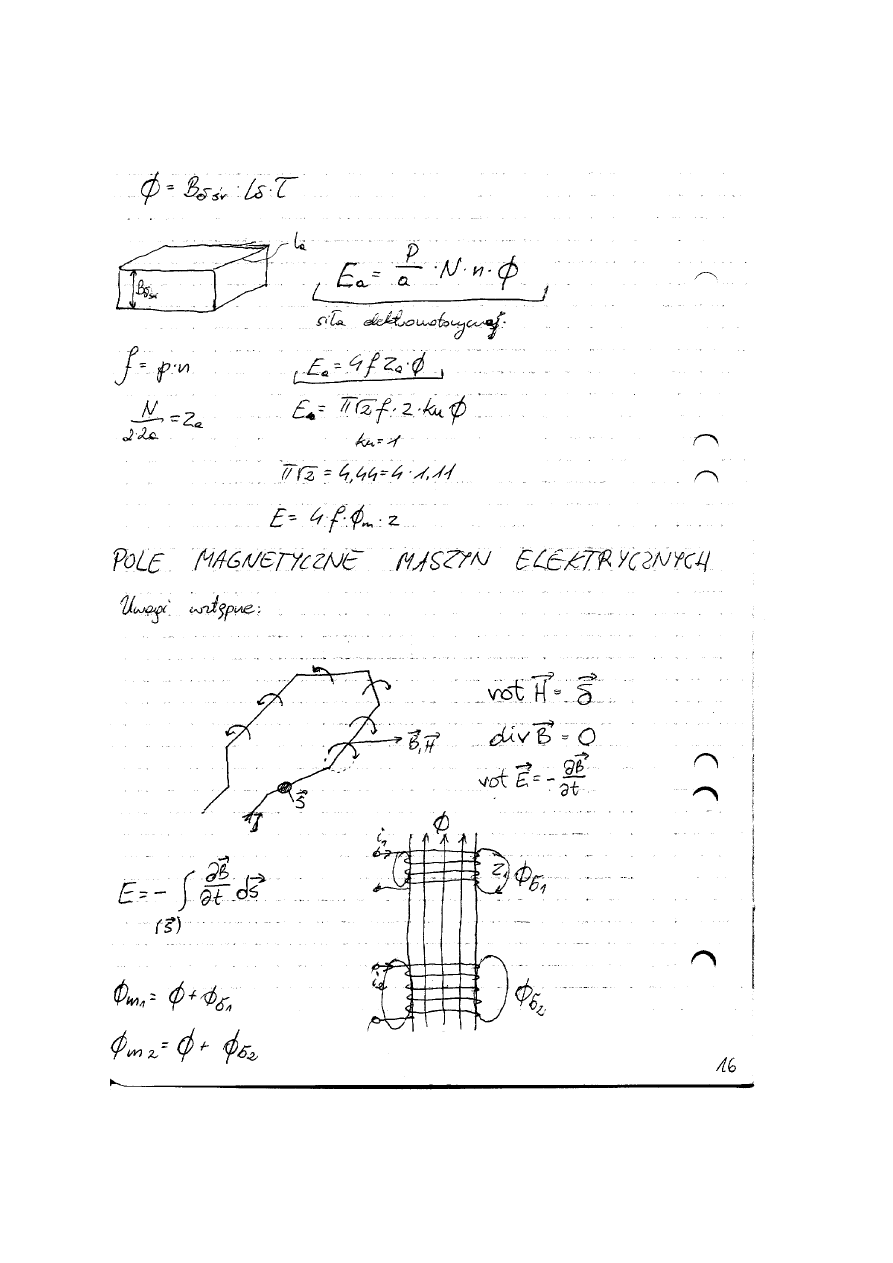 ϕ = Bδśr · lδ · τ
la
Bδśr
Ea = p/a · N · n · ϕ
siła elektromotoryczna
f = p·n
Ea = 4f za·ϕ
N/2·2a = za
Ea = π√2 f · z · ku ϕ
ku = 1
π√2 = 4,44 = 4 · 1,11
E = 4 · f · ϕm · z
POLE MAGNETYCZNE MASZYN ELEKTRYCZNYCH
Uwagi wstępne:
rot H⃗ = δ⃗
B⃗, H⃗
div B⃗ = 0
rot E⃗ = - ∂B⃗/∂t
ϕ
i1
z1
ϕб1
E = - ∫(s⃗) ∂B⃗/∂t ds⃗
ϕm1 = ϕ + ϕб1
ϕб2
ϕm2 = ϕ + ϕб2
16